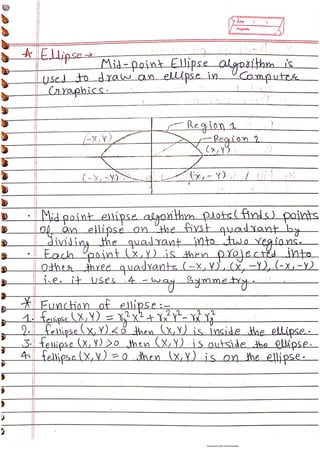 * Ellipse →
Mid-point Ellipse algorithm is
used to draw an ellipse in Computer
Graphics.
Region 1
(-X,Y)
Region 2
(X,Y)
(-X,-Y)
(X,-Y)
• Midpoint ellipse algorithm plots(finds) points
of an ellipse on the first quadrant by
dividing the quadrant into two regions.
• Each point (X,Y) is then projected into
other three quadrants (-X,Y), (X,-Y), (-X,-Y)
i.e. it uses 4-way symmetry.
* Function of ellipse:-
1. fellipse (X,Y) = ry²X² + rx²Y² - rx²ry²
2. fellipse (X,Y)<0 then (X,Y) is inside the ellipse.
3. fellipse (X,Y)>0 then (X,Y) is outside the ellipse.
4. fellipse (X,Y)=0 then (X,Y) is on the ellipse.